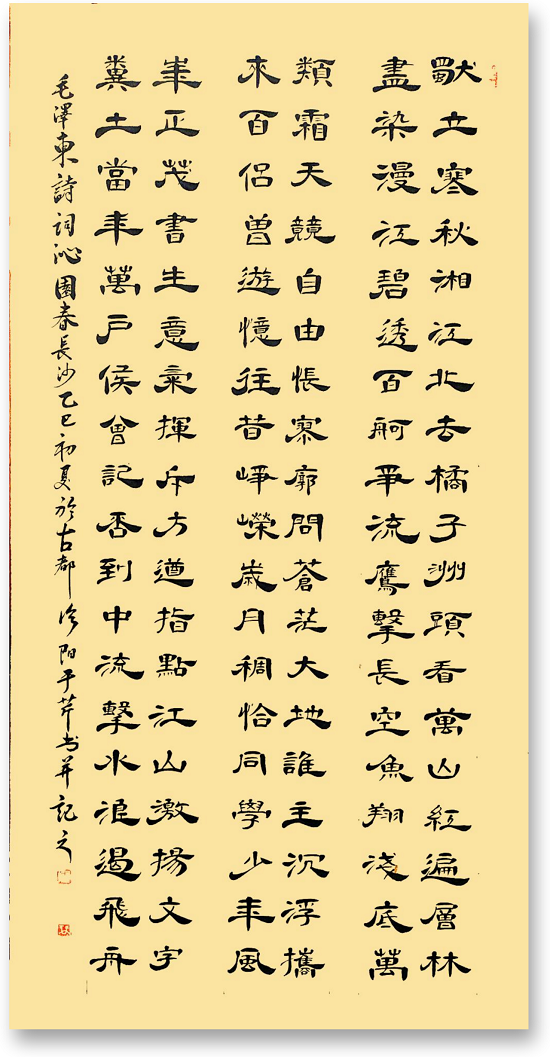 獨立寒秋湘江北去橘子洲頭看萬山紅遍層林
盡染漫江碧透百舸爭流鷹擊長空魚翔淺底萬
類霜天競自由悵寥廓問蒼茫大地誰主沉浮攜
來百侶曾遊憶往昔崢嶸歲月稠恰同學少年風
華正茂書生意氣揮斥方遒指點江山激揚文字
糞土當年萬戶侯曾記否到中流擊水浪遏飛舟
毛澤東詩詞沁園春長沙乙巳初夏於古都洛陽于芹书并記之